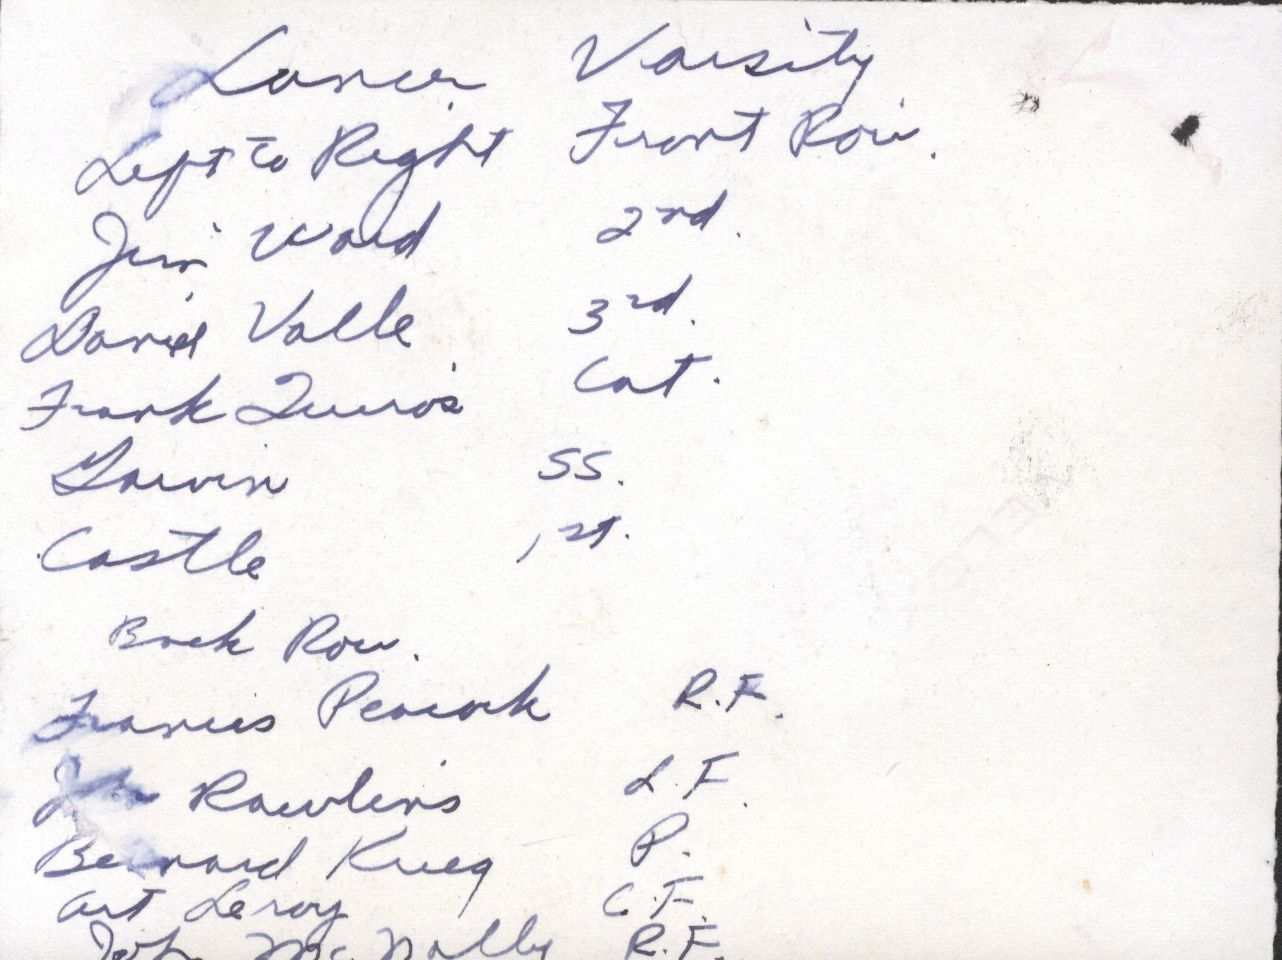 Lancer Varsity
Left to Right Front Row.
Jim Ward 2nd.
David Valle 3rd.
Frank Quiros Cat.
Garvin SS.
Castle 1st.
Back Row.
Francis Peacock R.F.
John Rawlins L.F.
Bernard Krieg P.
Art Leroy C.F.
John McNally R.F.